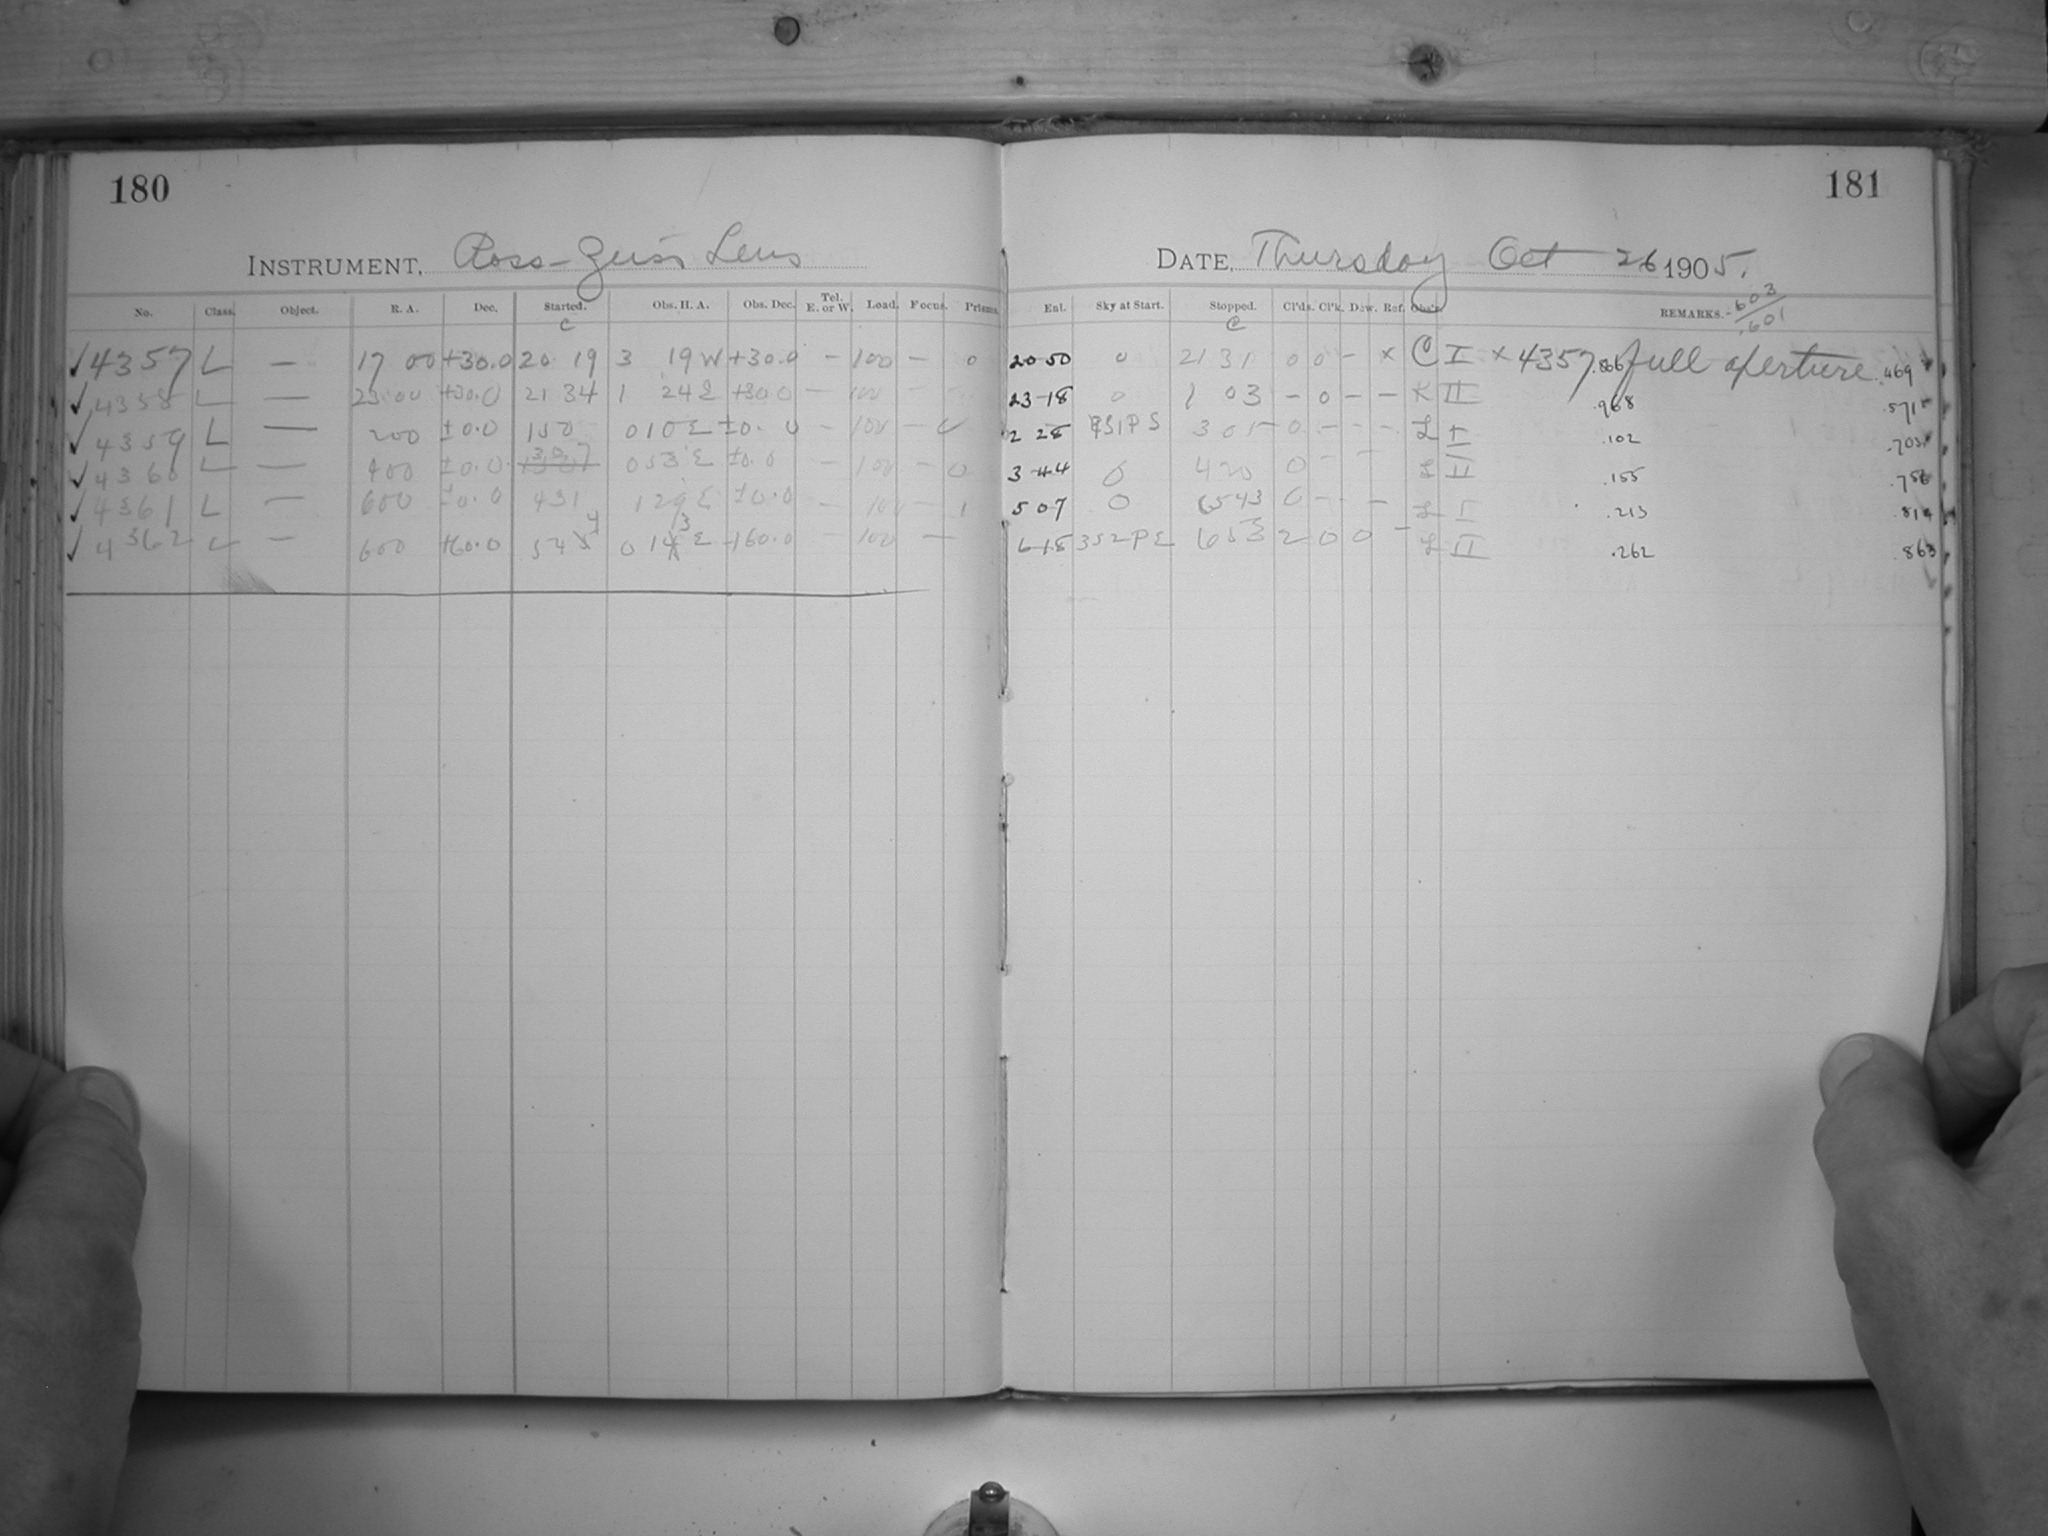 180
181
INSTRUMENT, Ross-Zeiss Lens
DATE, Thursday Oct 26 1905.
No. Class. Object. R. A. Dec. Started. Obs. H. A. Obs. Dec. Tel. E. or W. Load. Focus. Prisms.
Ent. Sky at Start. Stopped. Cl'ds. Cl'k. Dew. Ref. Obs'r. REMARKS. .603
C C .601
✓4357 L — 17 00 +30.0 20 19 3 19 W +30.0 – 100 – 0 20 50 0 21 31 0 0 – × C I × 4357 .866 full aperture .469
✓4358 L — 23 00 +30.0 21 34 1 24 E +30.0 – 100 – 23 18 0 1 03 – 0 – – K II .968 .571
✓4359 L — 200 ±0.0 150 010 E ±0.0 – 100 – 2 28 301 0 – – – L I .102 .705
✓4360 L — 400 ±0.0 307 053 E ±0.0 – 100 – 0 3 44 0 420 0 – – L II .155 .758
✓4361 L — 600 ±0.0 431 129 E ±0.0 – 100 – 1 5 07 0 543 0 – – – L I .213
✓4362 L — 600 +60.0 544 0 13 E +60.0 – 100 – 6 18 352PE 653 2 0 0 – L II .262 .863